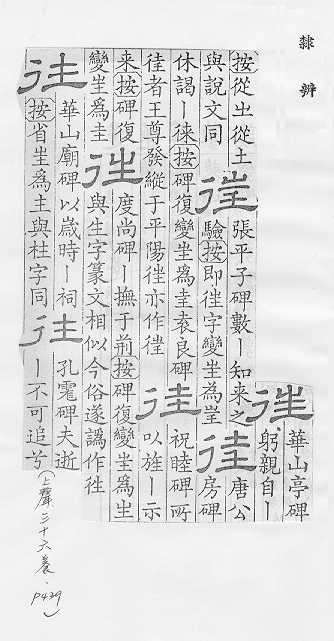 隸辨
往
華山亭碑
躬親自丨
按從㞢從土
與說文同
𢓸
張平子碑數丨知来之
驗按即往字變㞷為𡉚
往
唐公
房碑
休謁丨徠按碑復變㞷為圭袁良碑
徃者王尊發縱于平陽徃亦作徃
往
祝睦碑所
以旌丨示
来按碑復
變㞷為圭
徃
度尚碑丨撫于荊按碑復變㞷為生
與生字篆文相似今俗遂譌作徃
往
華山廟碑以歲時丨祠
按省㞷為主與柱字同
往
孔宙碑夫逝
丨不可追兮
(上聲三十六養.
P429)